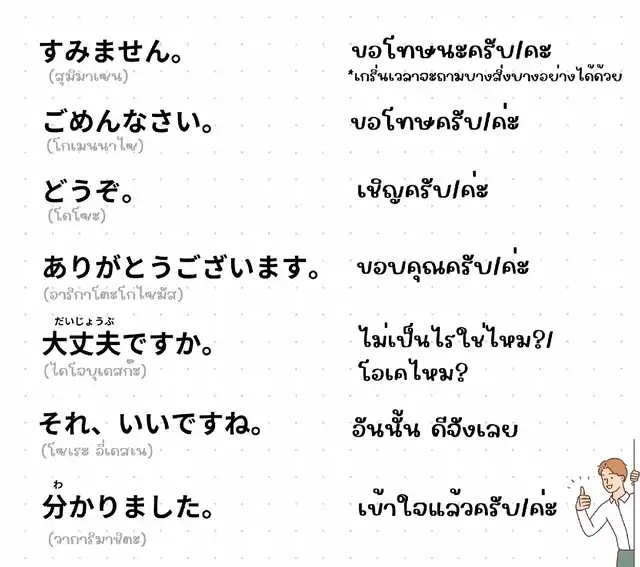 すみません。
(สุมิมาเซน)
ขอโทษนะครับ/คะ
*เกริ่นเวลาจะถามบางสิ่งบางอย่างได้ด้วย
ごめんなさい。
(โกเมนนาไซ)
ขอโทษครับ/ค่ะ
どうぞ。
(โดโซะ)
เชิญครับ/ค่ะ
ありがとうございます。
(อาริกาโตะโกไซมัส)
ขอบคุณครับ/ค่ะ
だいじょうぶ
大丈夫ですか。
(ไดโจบุเดสก๊ะ)
ไม่เป็นไรใช่ไหม?/
โอเคไหม?
それ、いいですね。
(โซเระ อี่เดสเน)
อันนั้น ดีจังเลย
わ
分かりました。
(วาการิมาชิตะ)
เข้าใจแล้วครับ/ค่ะ